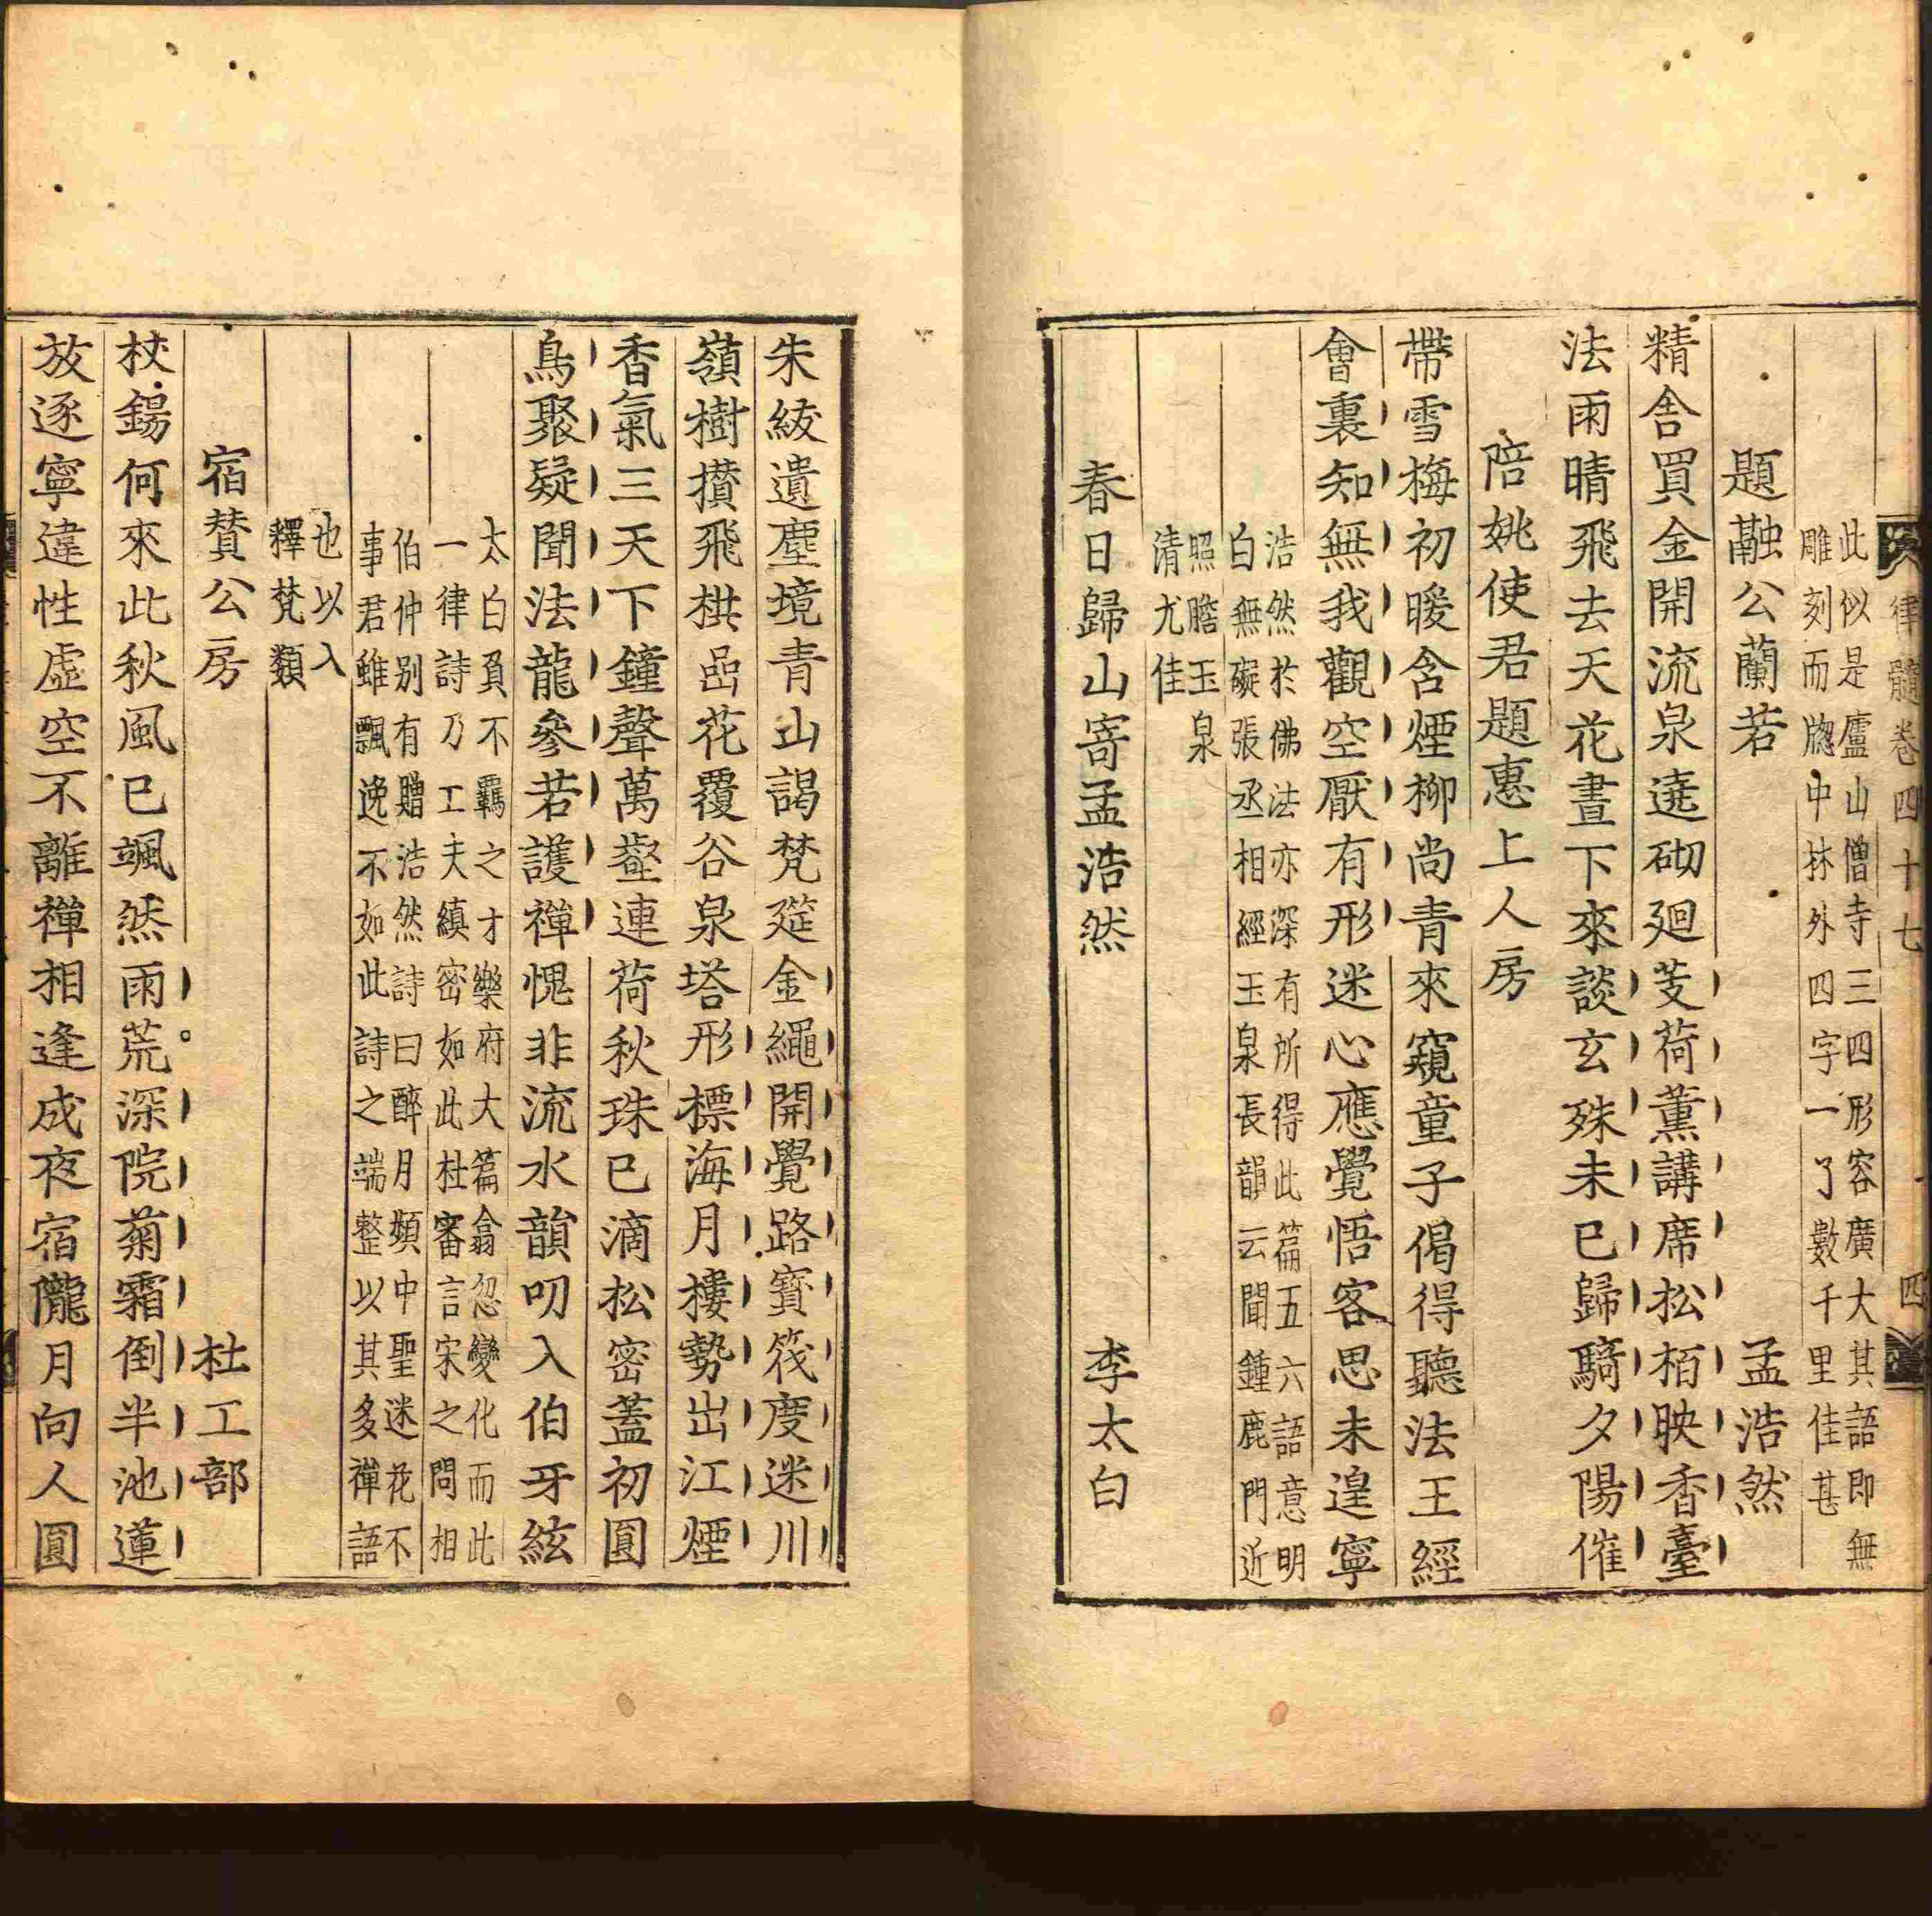 律髓卷四十七 四
此似是廬山僧寺三四形容廣大其語即無
雕刻而牕中林外四字一了數千里佳甚
題融公蘭若 孟浩然
精舍買金開流泉遶砌廻芰荷薰講席松栢映香臺
法雨晴飛去天花晝下來談玄殊未已歸騎夕陽催
陪姚使君題惠上人房
帶雪梅初暖含煙柳尚青來窺童子偈得聽法王經
會裏知無我觀空厭有形迷心應覺悟客思未遑寧
浩然於佛法亦深有所得此篇五六語意明
白無礙張丞相經玉泉長韻云聞鍾鹿門近
照膽玉泉
清尤佳
春日歸山寄孟浩然 李太白
朱紱遺塵境青山謁梵筵金繩開覺路寳筏度迷川
嶺樹攅飛栱嵒花覆谷泉塔形標海月樓勢出江煙
香氣三天下鐘聲萬壑連荷秋珠已滴松密蓋初圓
鳥聚疑聞法龍參若護禪愧非流水韻叨入伯牙絃
太白負不羈之才樂府大篇翕忽變化而此
一律詩乃工夫縝密如此杜審言宋之問相
伯仲別有贈浩然詩曰醉月頻中聖迷花不
事君雖飄逸不如此詩之端整以其多禪語
也以入
釋梵類
宿賛公房 杜工部
杖錫何來此秋風已颯然雨荒深院菊霜倒半池蓮
放逐寧違性虛空不離禪相逢成夜宿隴月向人圓